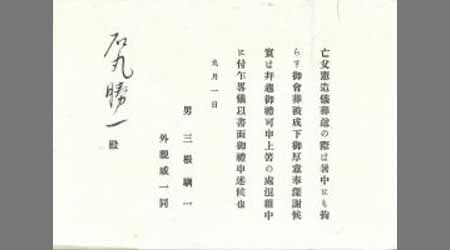 亡父憲造儀葬送の際は暑中にも拘
らす御會葬被成下御厚意奉深謝候
實は拝趨御禮可申上筈の處混雜中
に付乍畧儀以書面御禮申述候也
九月一日
男 三根 一
外親戚一同
石丸勝一殿